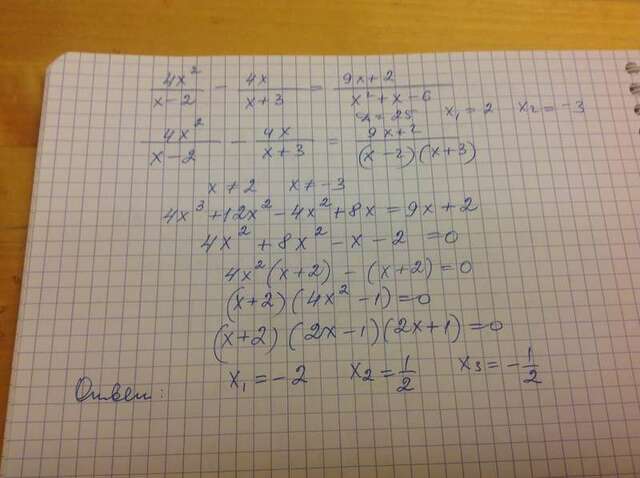 4x²/(x-2) - 4x/(x+3) = (9x+2)/(x²+x-6)
D=25 x₁=2 x₂=-3
4x²/(x-2) - 4x/(x+3) = (9x+2)/((x-2)(x+3))
x≠2 x≠-3
4x³+12x²-4x²+8x=9x+2
4x²+8x²-x-2=0
4x²(x+2)-(x+2)=0
(x+2)(4x²-1)=0
(x+2)(2x-1)(2x+1)=0
Ответ: x₁=-2 x₂=1/2 x₃=-1/2